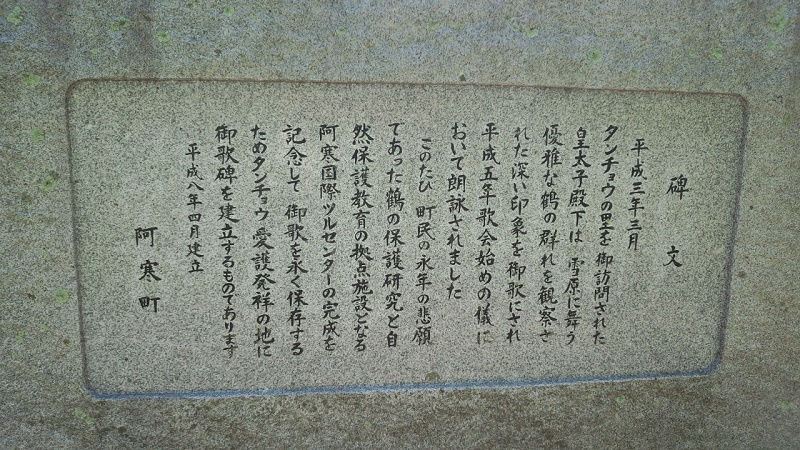 碑文
平成三年三月
タンチョウの里を御訪問された
皇太子殿下は 雪原に舞う
優雅な鶴の群れを観察さ
れた深い印象を御歌にされ
平成五年歌会始めの儀に
おいて朗詠されました
このたび 町民の永年の悲願
であった鶴の保護研究と自
然保護教育の拠点施設となる
阿寒国際ツルセンターの完成を
記念して 御歌を永く保存する
ためタンチョウ愛護発祥の地に
御歌碑を建立するものであります
平成八年四月建立
阿寒町